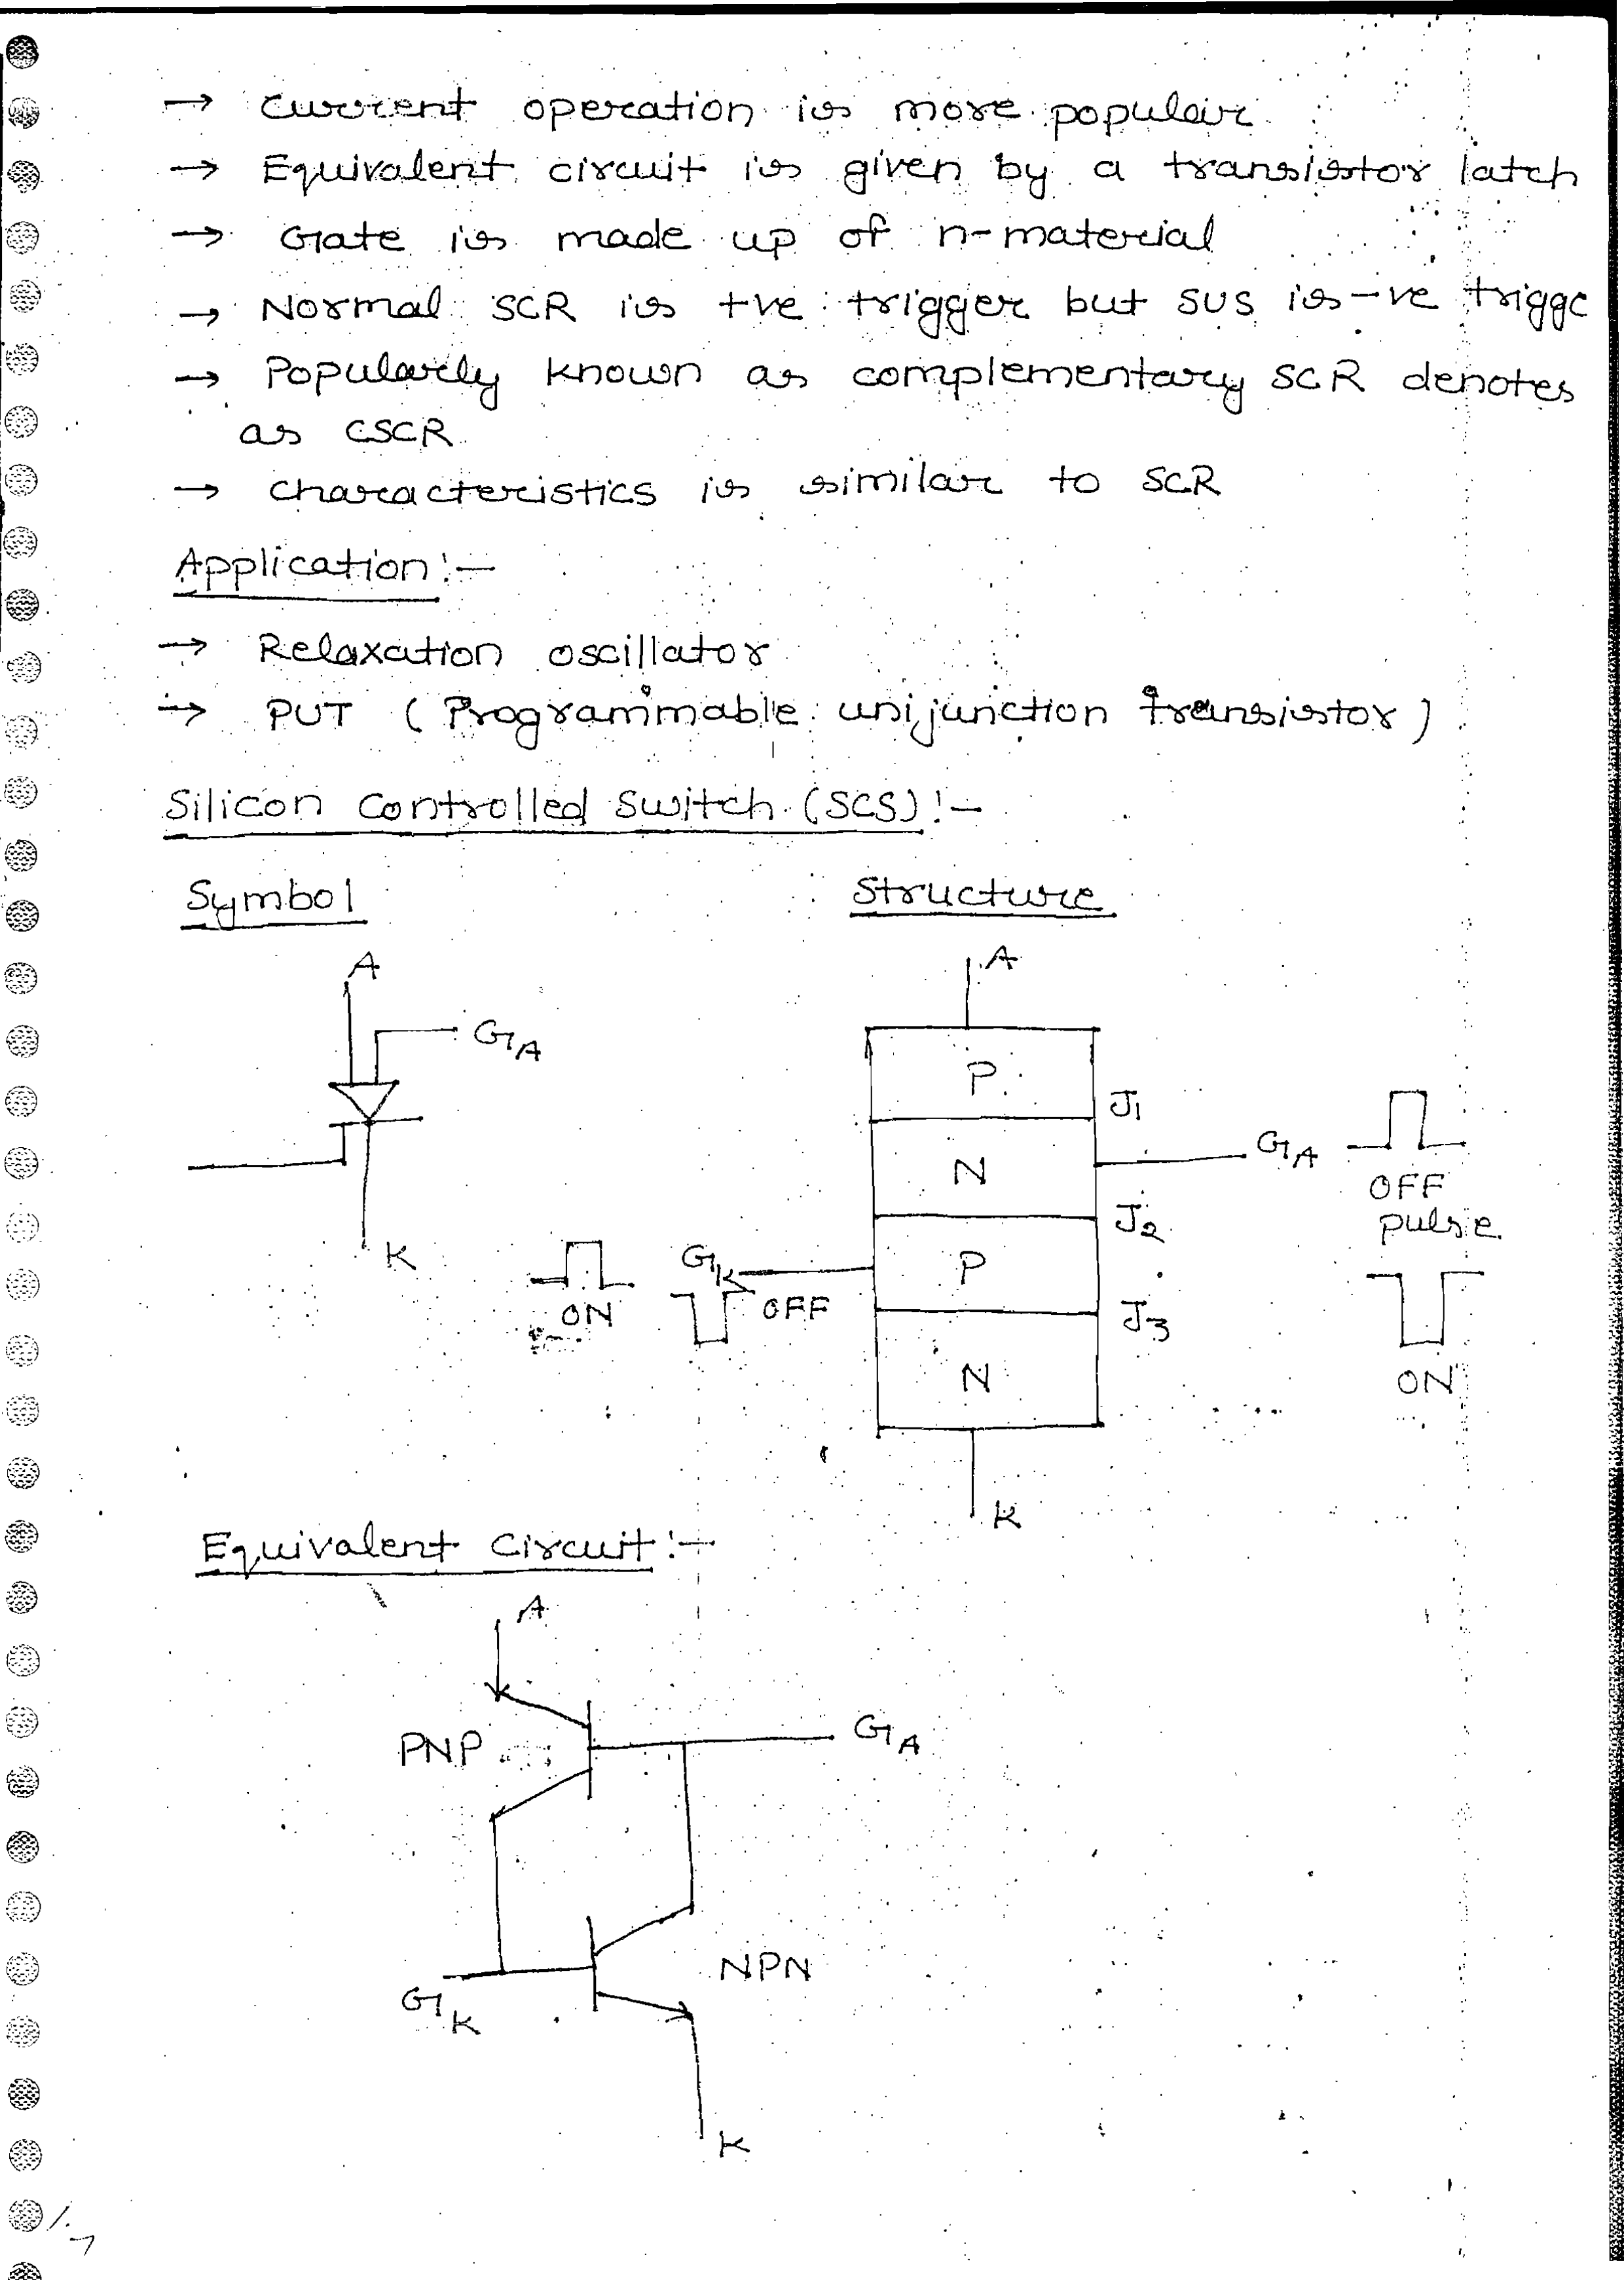 → Current operation is more popular
→ Equivalent circuit is given by a transistor latch
→ Gate is made up of n-material
→ Normal SCR is +ve trigger but SUS is -ve trigge
→ Popularly known as complementary SCR denotes
as CSCR
→ characteristics is similar to SCR
Application:-
→ Relaxation oscillator
→ PUT (Programmable unijunction transistor)
Silicon Controlled Switch (SCS):-
Symbol
Structure
A
A
GA
P
J1
GA
N
OFF
pulse
J2
K
GK
P
ON
OFF
J3
N
ON
K
Equivalent Circuit:-
A
PNP
GA
NPN
GK
K